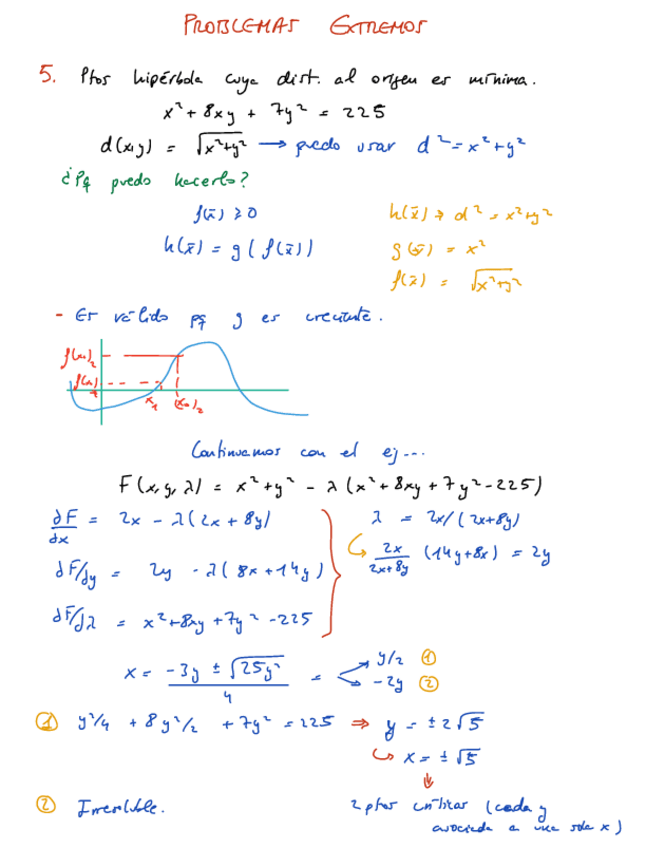 PROBLEMAS EXTREMOS
5. Ptos hipérbola cuya dist. al origen es mínima.
x² + 8xy + 7y² = 225
d(x,y) = √x²+y² → puedo usar d² = x² + y²
¿Pq puedo hacerlo?
f(x̄) ≥ 0
h(x̄) → d² = x²+y²
h(x̄) = g(f(x̄))
g(x̄) = x²
f(x̄) = √x²+y²
- Es válido pq g es creciente.
f(x₀)₂
f(x)₁
x₁
(x₀)₂
Continuamos con el ej...
F(x,y,λ) = x²+y² - λ(x²+8xy+7y²-225)
∂F/dx = 2x - λ(2x + 8y)
λ = 2x/(2x+8y)
2x/2x+8y (14y+8x) = 2y
dF/dy = 2y - λ(8x+14y)
dF/dλ = x²+8xy+7y²-225
x = -3y ± √25y² / 4 = y/2 ①
-2y ②
① y²/4 + 8y²/2 + 7y² = 225 ⇒ y = ±2√5
↪ x = ±√5
② Irresoluble.
2 ptos críticos (cada y
asociada a una sola x)